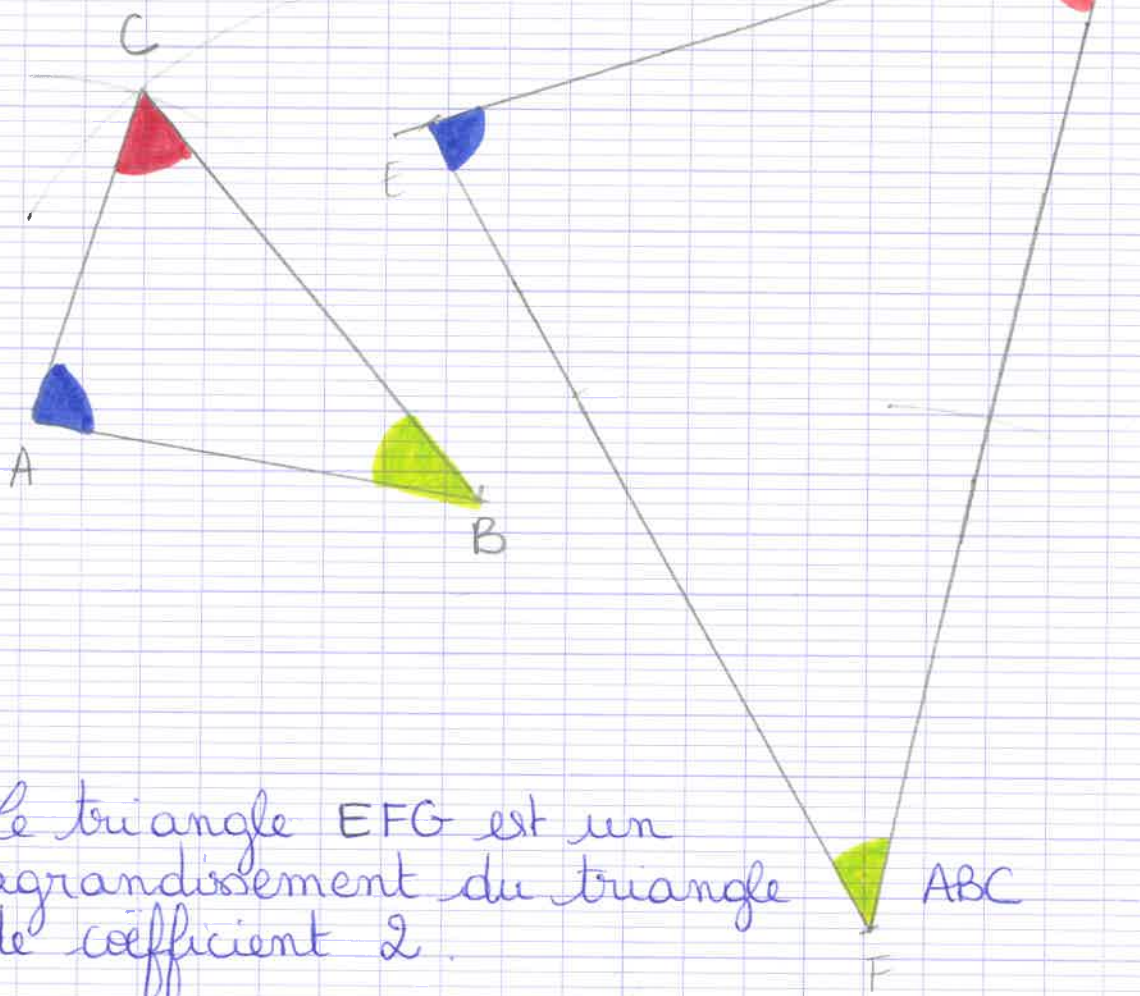 C
E
A
B
le triangle EFG est un
agrandissement du triangle ABC
de coëfficient 2.
F